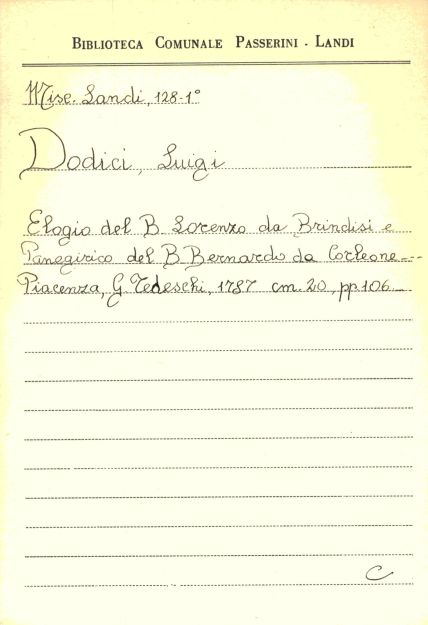 BIBLIOTECA COMUNALE PASSERINI - LANDI
Misc. Landi, 128-1°
Dodici, Luigi
Elogio del B. Lorenzo da Brindisi e
Panegirico del B. Bernardo da Corleone -
Piacenza, G. Tedeschi, 1787 cm. 20, pp. 106 -
C